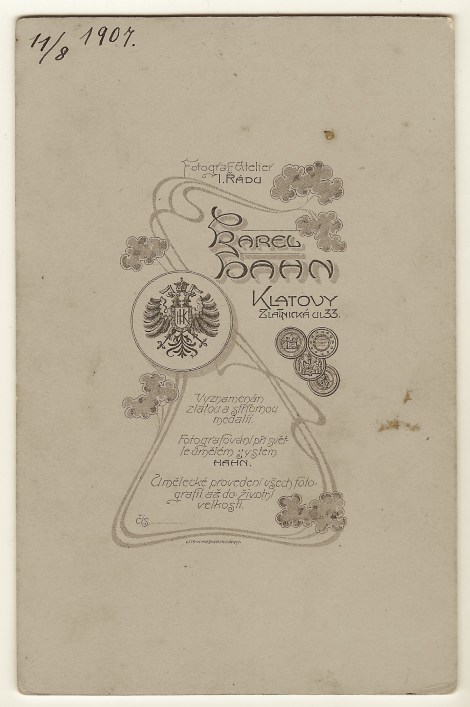 11/8 1907.
Fotograf. Atelier
I. ŘÁDU
KAREL
HAHN
KLATOVY
ZLATNICKÁ UL 33.
HK
Vyznamenán
zlatou a stříbrnou
medailií.
Fotografování při svět-
le umělém system
HAHN.
Umělecké provedení všech foto-
grafií až do životní
velkosti.
čís.